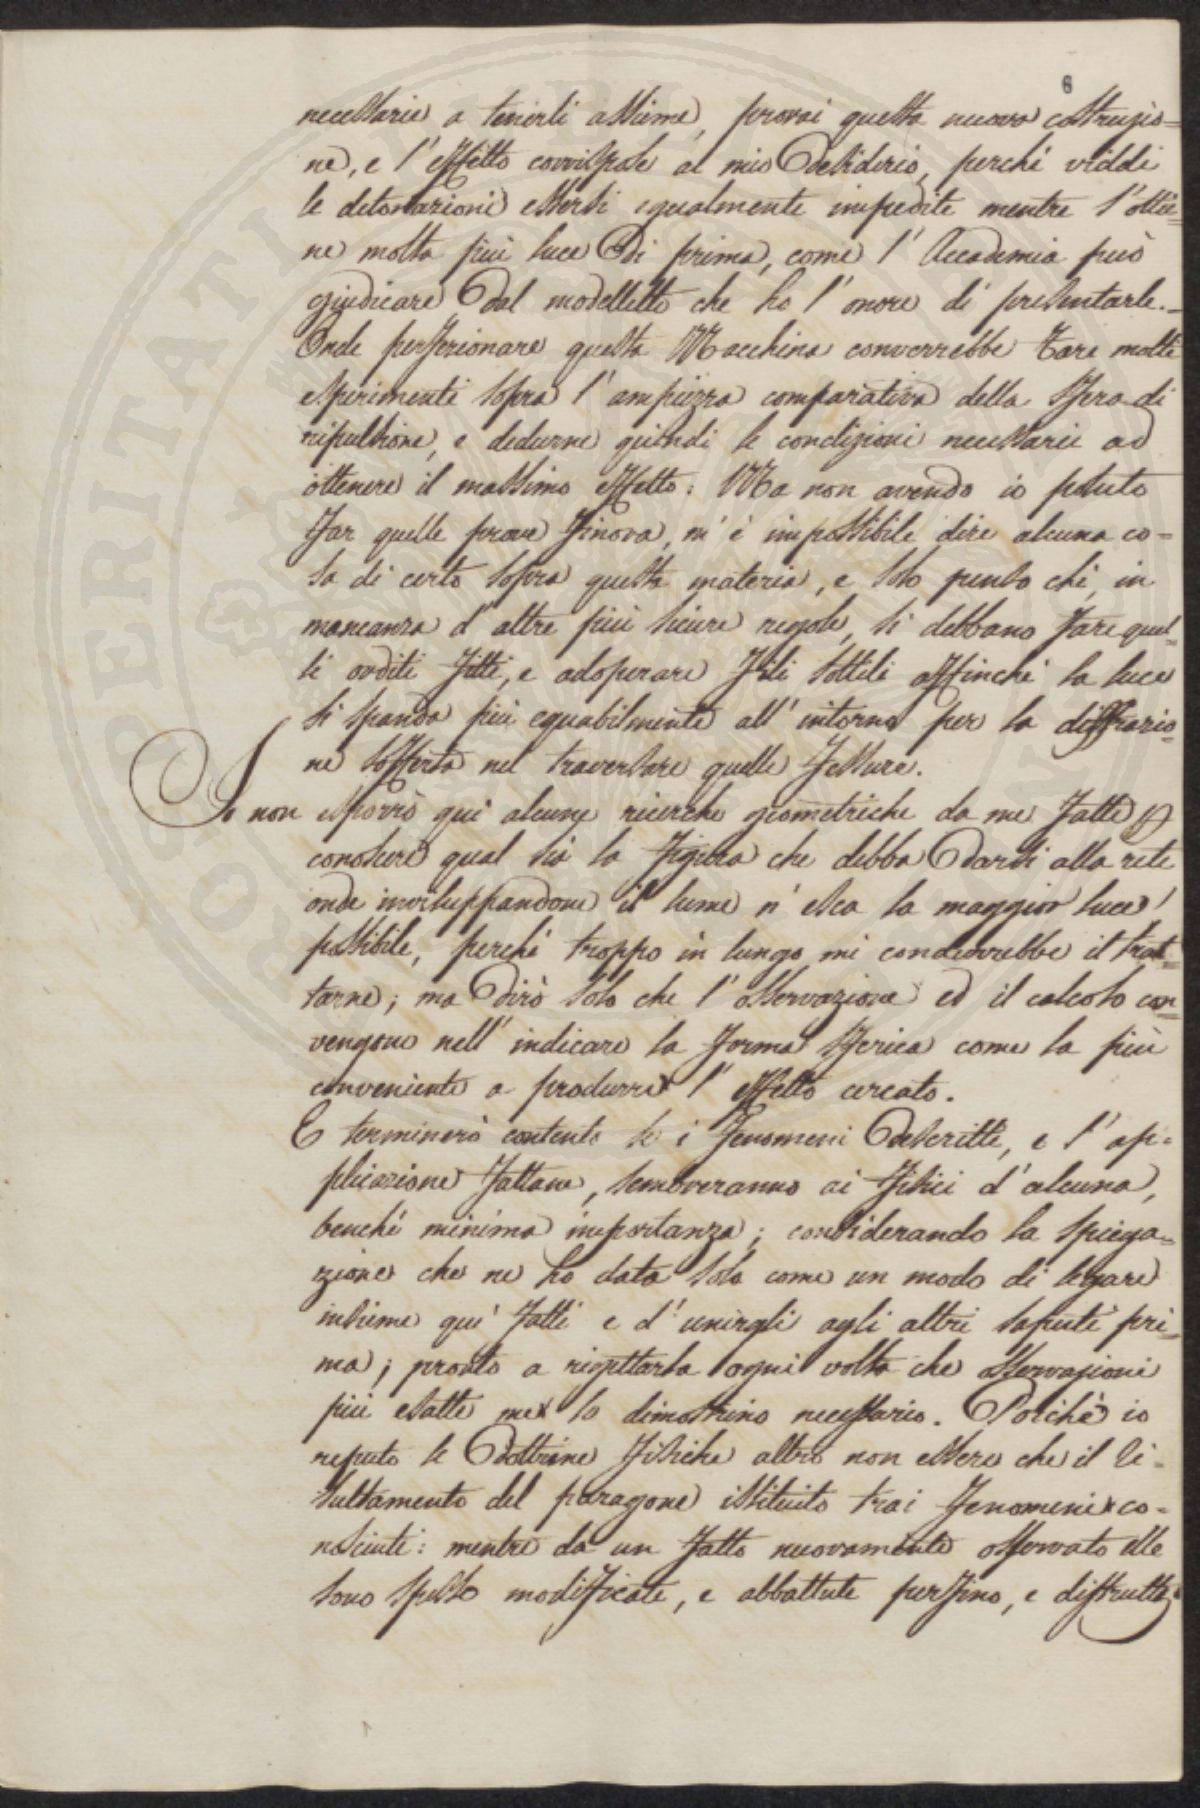 6
necessarie a tenerli assieme, provai questa nuova costruzio=
ne, e l'effetto corrispose al mio desiderio, perchè viddi
le detonazioni essersi egualmente impedite mentre s'ottie=
ne molta più luce di prima, come l'Accademia può
giudicare dal modelletto che ho l'onore di presentarle._
Onde perfezionare questa Macchina converrebbe fare molti
esperimenti sopra l'ampiezza comparativa della sfera di
ripulsione, e dedurne quindi le condizioni necessarie ad
ottenere il massimo effetto: Ma non avendo io potuto
far quelle prove finora, m'è impossibile dire alcuna co=
sa di certo sopra questa materia, e solo penso che, in
mancanza d'altre più sicure regole, si debbano fare quel=
li orditi fitti, e adoperare fili sottili affinchè la luce
si spanda più equabilmente all'intorno per la diffrazio=
ne sofferta nel traversare quelle fessure.
Io non esporrò qui alcune ricerche geometriche da me fatte p
conoscere qual sia la figura che debba darsi alla rete
onde inviluppandone il lume n'esca la maggior luce
possibile, perchè troppo in lungo mi condurrebbe il trat=
tarne; ma dirò solo che l'osservazione ed il calcolo con=
vengono nell'indicare la forma sferica come la più
conveniente a produrre l'effetto cercato.
E terminerò contento se i fenomeni descritti, e l'ap=
plicazione fattane, sembreranno ai fisici d'alcuna,
benchè minima importanza; considerando la spiega=
zione che ne ho data solo come un modo di legare
insieme que' fatti e d'unirgli agli altri saputi pri=
ma; pronto a rigettarla ogni volta che osservazioni
più esatte me lo dimostrino necessario. Poichè io
reputo le dottrine fisiche altro non essere che il ri=
sultamento del paragone istituito trai fenomeni co=
nosciuti: mentre da un fatto nuovamente osservato elle
sono spesso modificate, e abbattute perfino, e distrutte
PROSPERITATI PUBLICAE